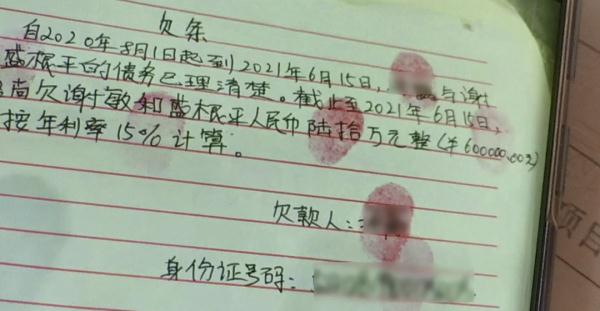 欠条
自2020年8月1日起到2021年6月15日, 与谢
盛根平的债务已理清楚。截止至2021年6月15日,
尚欠谢敏和盛根平人民币陆拾万元整(￥600000.00元)
按年利率15%计算。
欠款人:
身份证号码:
项目